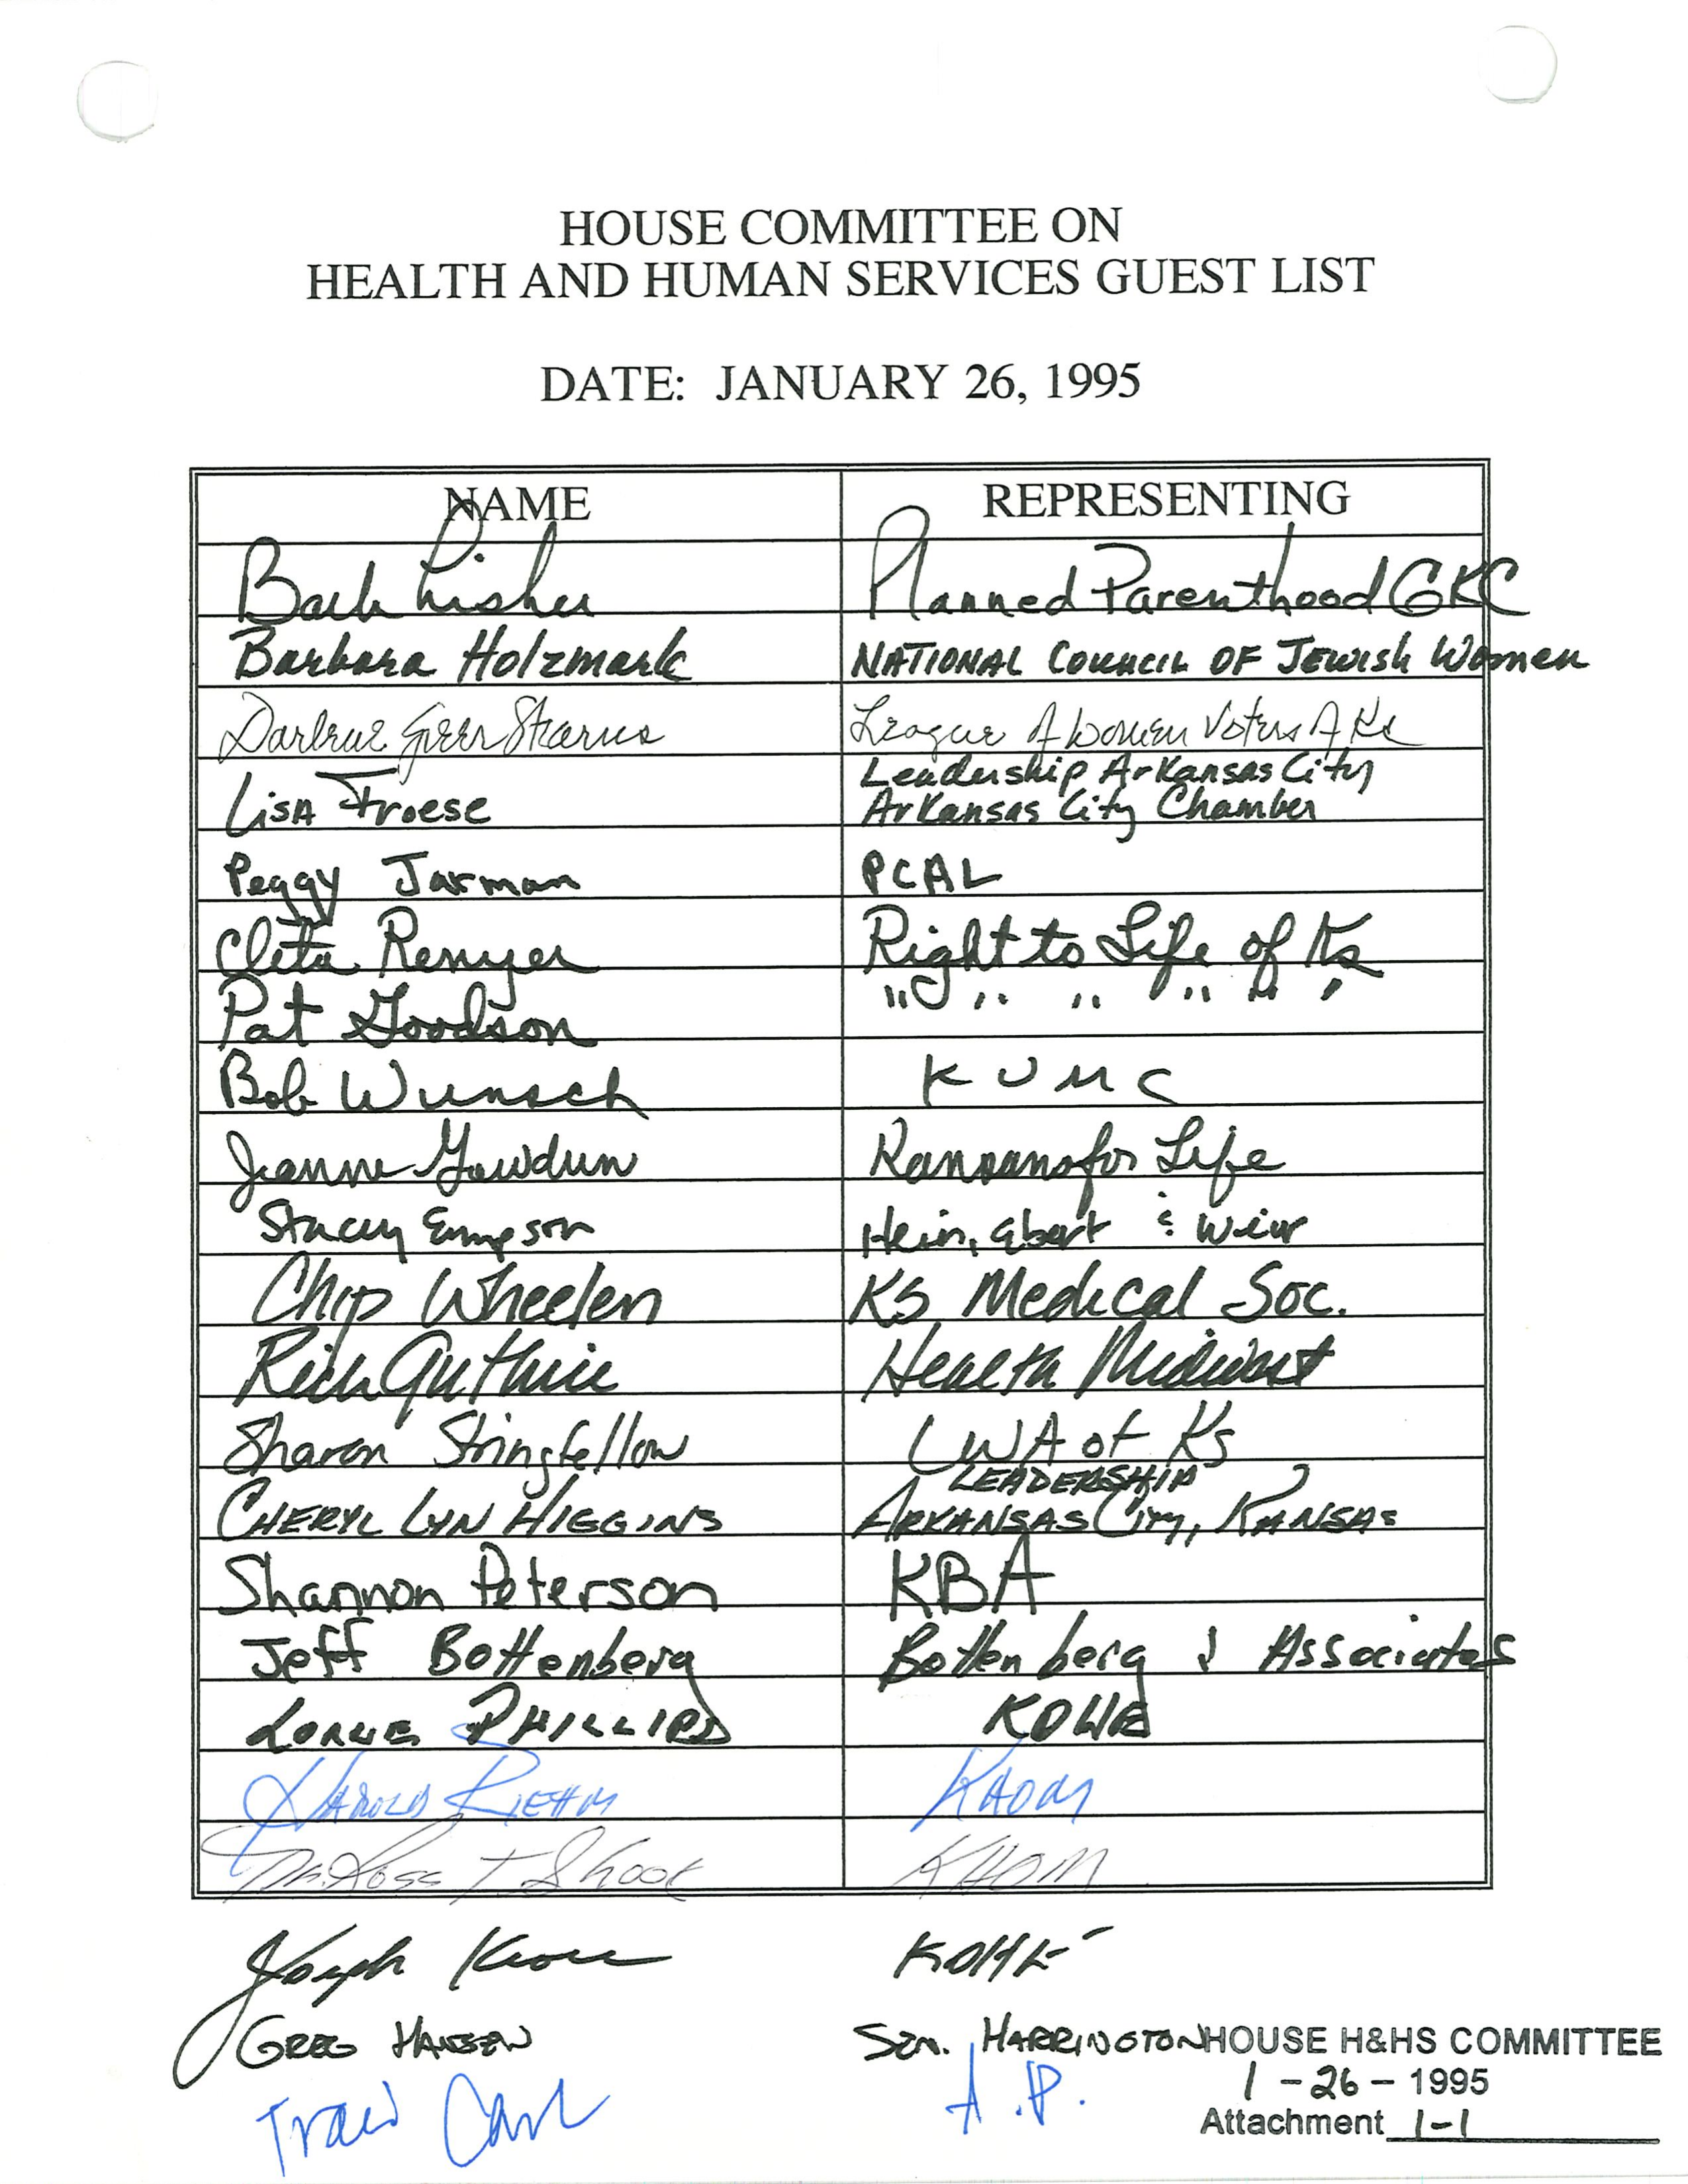 HOUSE COMMITTEE ON
HEALTH AND HUMAN SERVICES GUEST LIST
DATE: JANUARY 26, 1995
NAME REPRESENTING
Barb Planned Parenthood GKC
Barbara Holzmark NATIONAL COUNCIL OF JEWISH WOMEN
Darlene Greer Stearns League of Women Voters of Ks
Leadership Arkansas City
Lisa Froese Arkansas City Chamber
Peggy Jarman PCAL
Cleta Renyer Right to Life of Ks
Pat Goodson " " " " " "
Bob Wunsch KUMC
Jeanne Gawdun Kansans for Life
Stacey Empson Hein, Ebert & Weir
Chip Wheelen KS Medical Soc.
Rich Guthrie Health Midwest
Sharon Stringfellow CWA of Ks
LEADERSHIP
CHERYL LYN HIGGINS ARKANSAS CITY, KANSAS
Shannon Peterson KBA
Jeff Bottenberg Bottenberg & Associates
LORNE PHILLIPS KDHE
HAROLD RIEHM KAOM
Dr. Ross T. KAOM
Joseph Kroll KDHE
GREG HANSEN SEN. HARRINGTON
HOUSE H&HS COMMITTEE
Traci A.P.
1-26-1995
Attachment 1-1